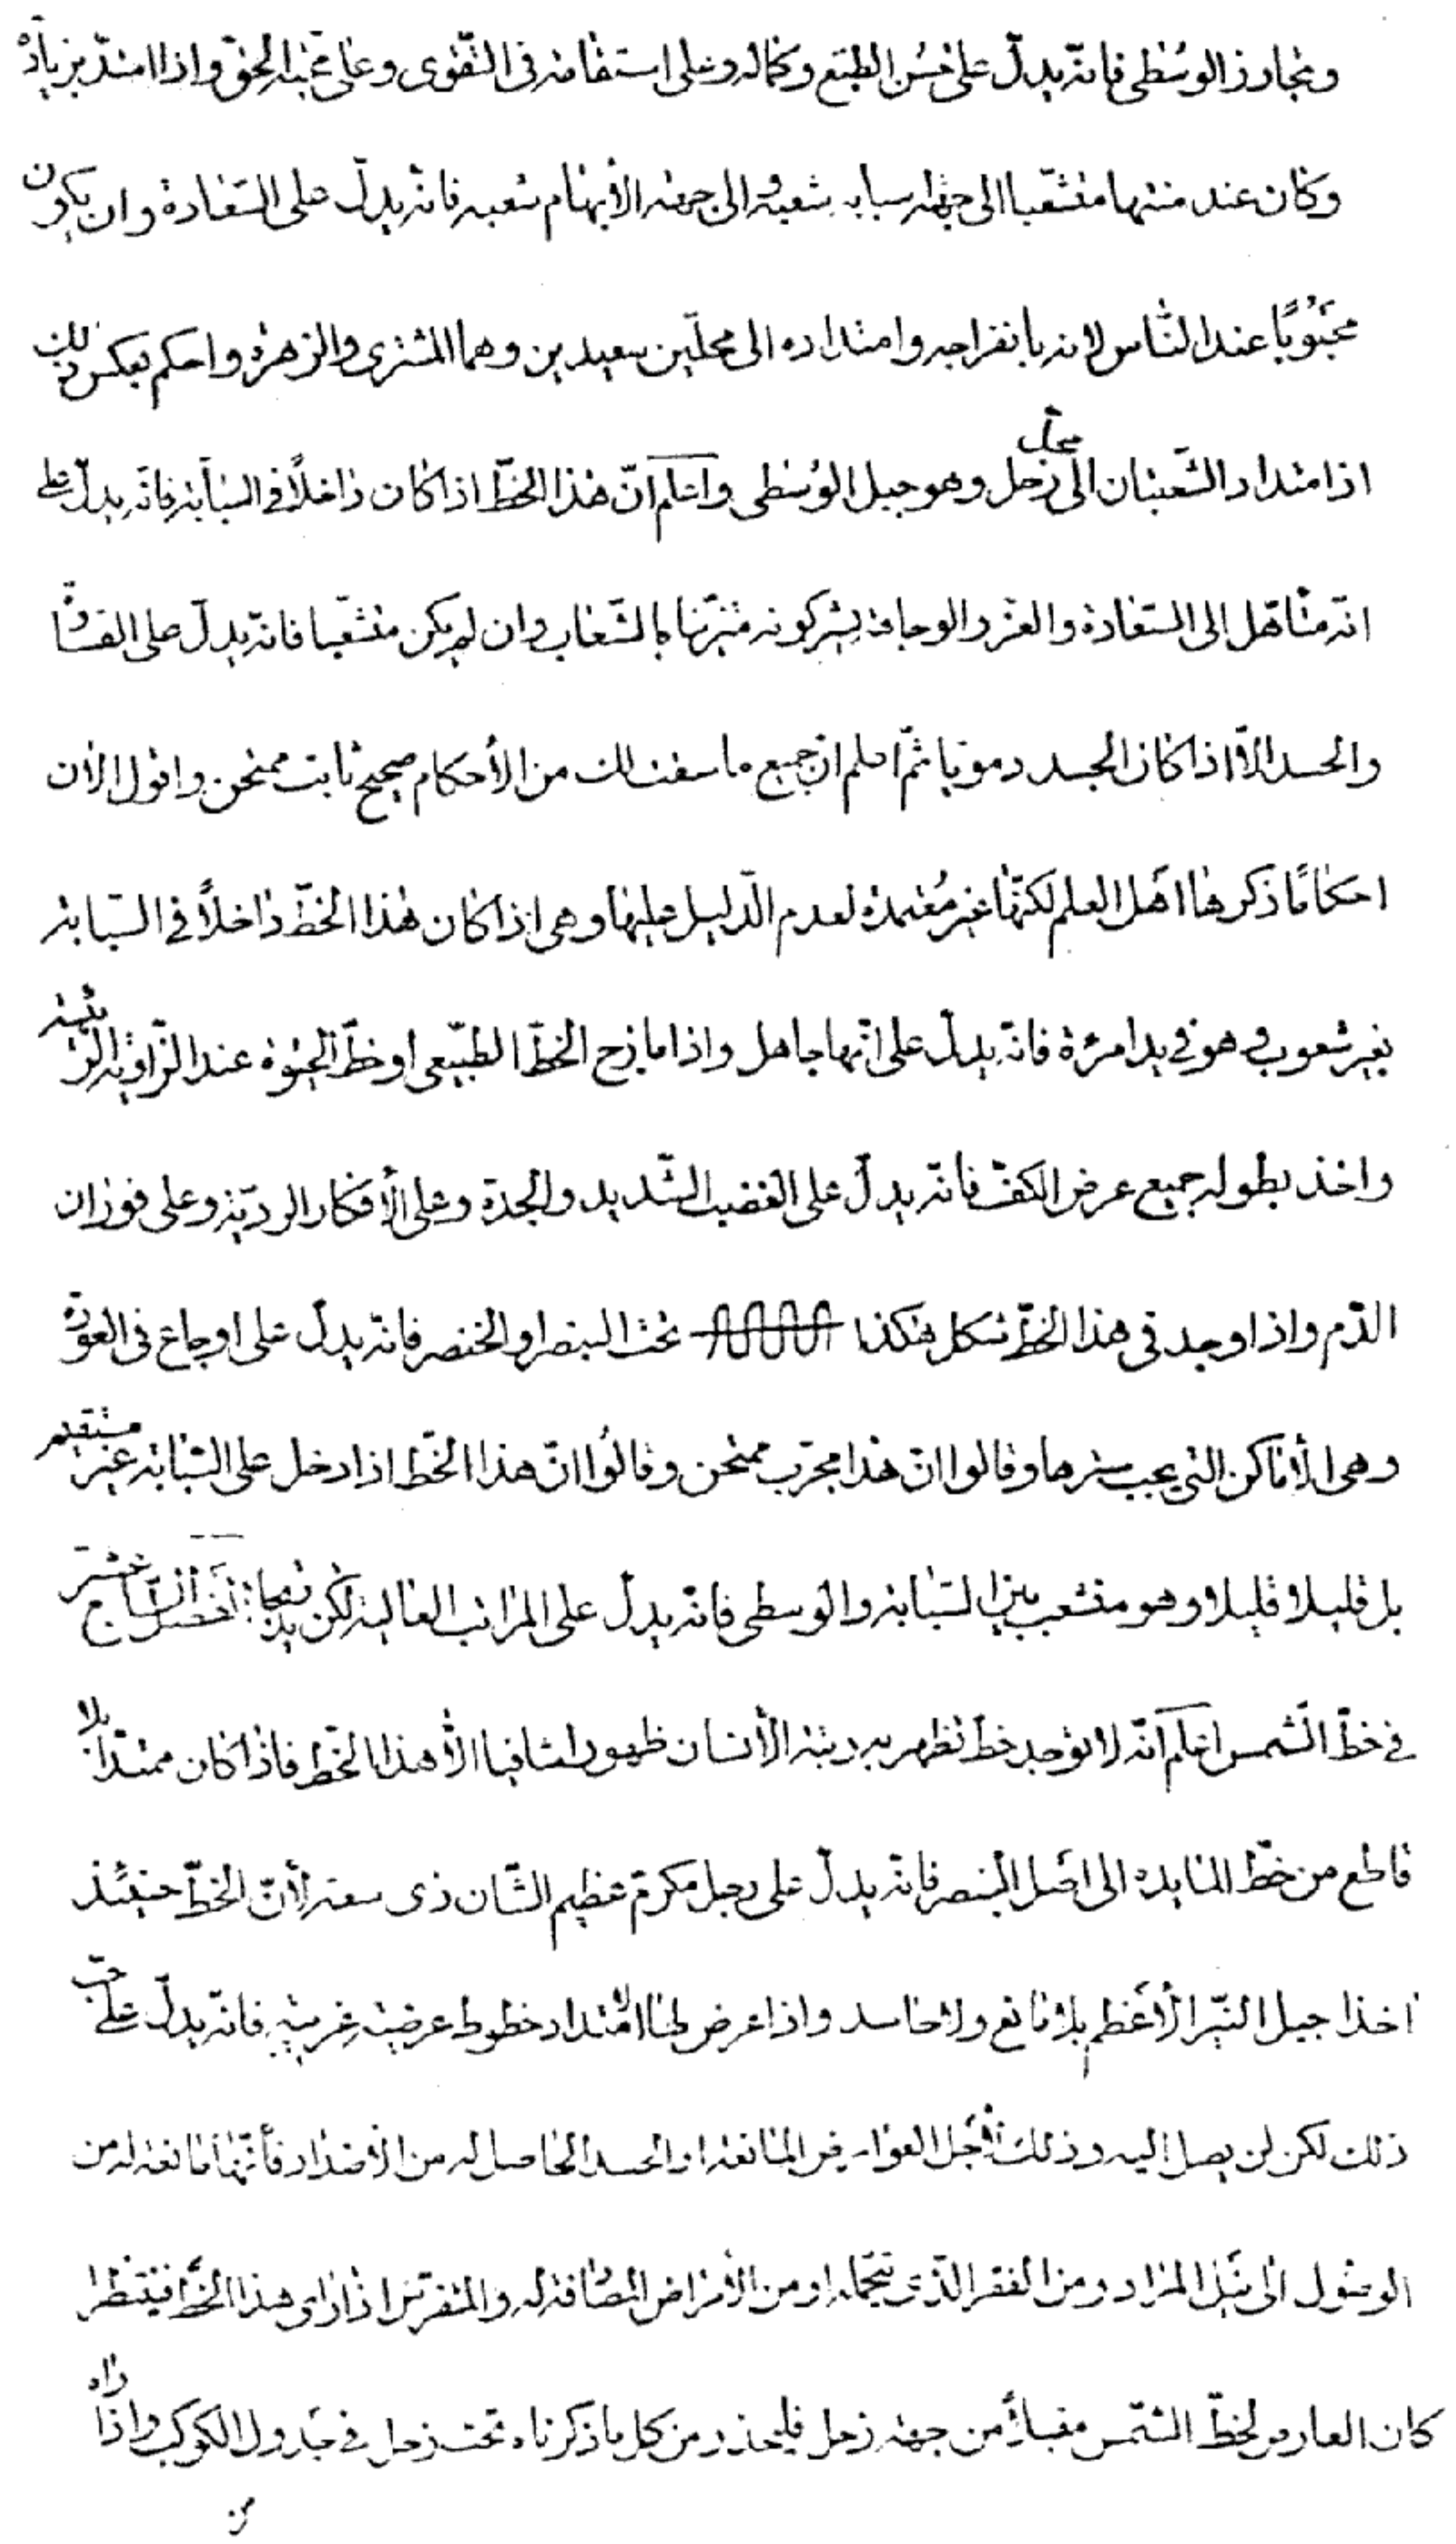 وتجاوز الوسطى فانّه يدلّ على حُسن الطبع وكماله وعلى استقامته فى التّقوى وعلى محبّته الحقّ واذا امتدّ بزيادة
وكان عند منتها منشعّبا الى جهة سبابه شعبة والى جهة الأبهام شعبه فانّه يدلّ على السّعادة وان يكون
محبُوبًا عند النّاس لانه بانفراجه وامتداده الى محلّين سعيدين وهما المشترى والزهرة واحكم بعكس ذلك
اذا امتداد الشّعبتان الى محلّ زحل وهو جبل الوُسطى واعلم انّ هذا الخطّ اذا كان داخلاً فى السّبّابة فانّه يدلّ على
انّه متأهّل الى السّعادة والعزّ والوجاهة بشر كونه متزيّنا بالشّعاب وان لم يكن منشعّبا فانّه يدلّ على القساوة
والحسد الاّ اذا كان الجسد دمويا ثمّ اعلم انّ جميع ما سقت لك من الأحكام صحيح ثابت ممتحن واقول الأن
احكامًا ذكرها اهل العلم لكنّها غير مُعتمدة لعدم الدّليل عليها وهى اذا كان هذا الخطّ داخلاً فى السّبّابة
بغير شعوب وهو فى يد امرءة فانّه يدلّ على انّها جاهل واذا مازح الخطّ الطبيّعى او خطّ الحيوة عند الزّاوية الرّئيسة
واخذ بطوله جميع عرض الكفّ فانّه يدلّ على الغضب الشّديد والحدّة وعلى الأفكار الرديّة وعلى فوران
الدّم واذا وجد فى هذا الخطّ شكل هكذا تحت البنصر او الخنصر فانّه يدلّ على اوجاع فى العورة
وهى الأماكن التى يجب سترها وقالوا انّ هذا مجرّب ممتحن وقالُوا انّ هذا الخّط اذا دخل على السّبّابة غير مستقيم
بل قليلا قليلا وهو منشعب بين السّبّابة والوسطى فانّه يدلّ على المراتب العالية لكن الفصل السّابع عشر
فى خطّ الشّمس اعلم انّه لا يوجد خطّ تظهر به رتبة الأنسان ظهورا شافيا الاّ هذا الخّط فاذا كان ممتدّا بلا
قاطع من خطّ المايده الى اصل البنصر فانّه يدلّ على رجل مكرّم عظيم الشّان ذى سعة لأنّ الخطّ حينئذ
اخذ جبل النّيّر الأعظم بلا مانع ولا حاسد واذا عرض لهذا الامتداد خطوط عرضية غريبة فانّه يدلّ على حبّ
ذلك لكن لن يصل اليه وذلك لأجل العوارض المانعة او الحسد الحاصل له من الأضداد فأنّها مانعة له من
الوصول الى نيل المراد ومن الفقر الّذى او من الأمراض المضافة له والمتفرّس اذا راى هذا الخطّ فينتظر اذا
كان العارض لخطّ الشّمس مقبلاً من جهة زحل فليحذر من كل ما ذكرناه تحت زحل فى جدول الكوكب واذا راه
من